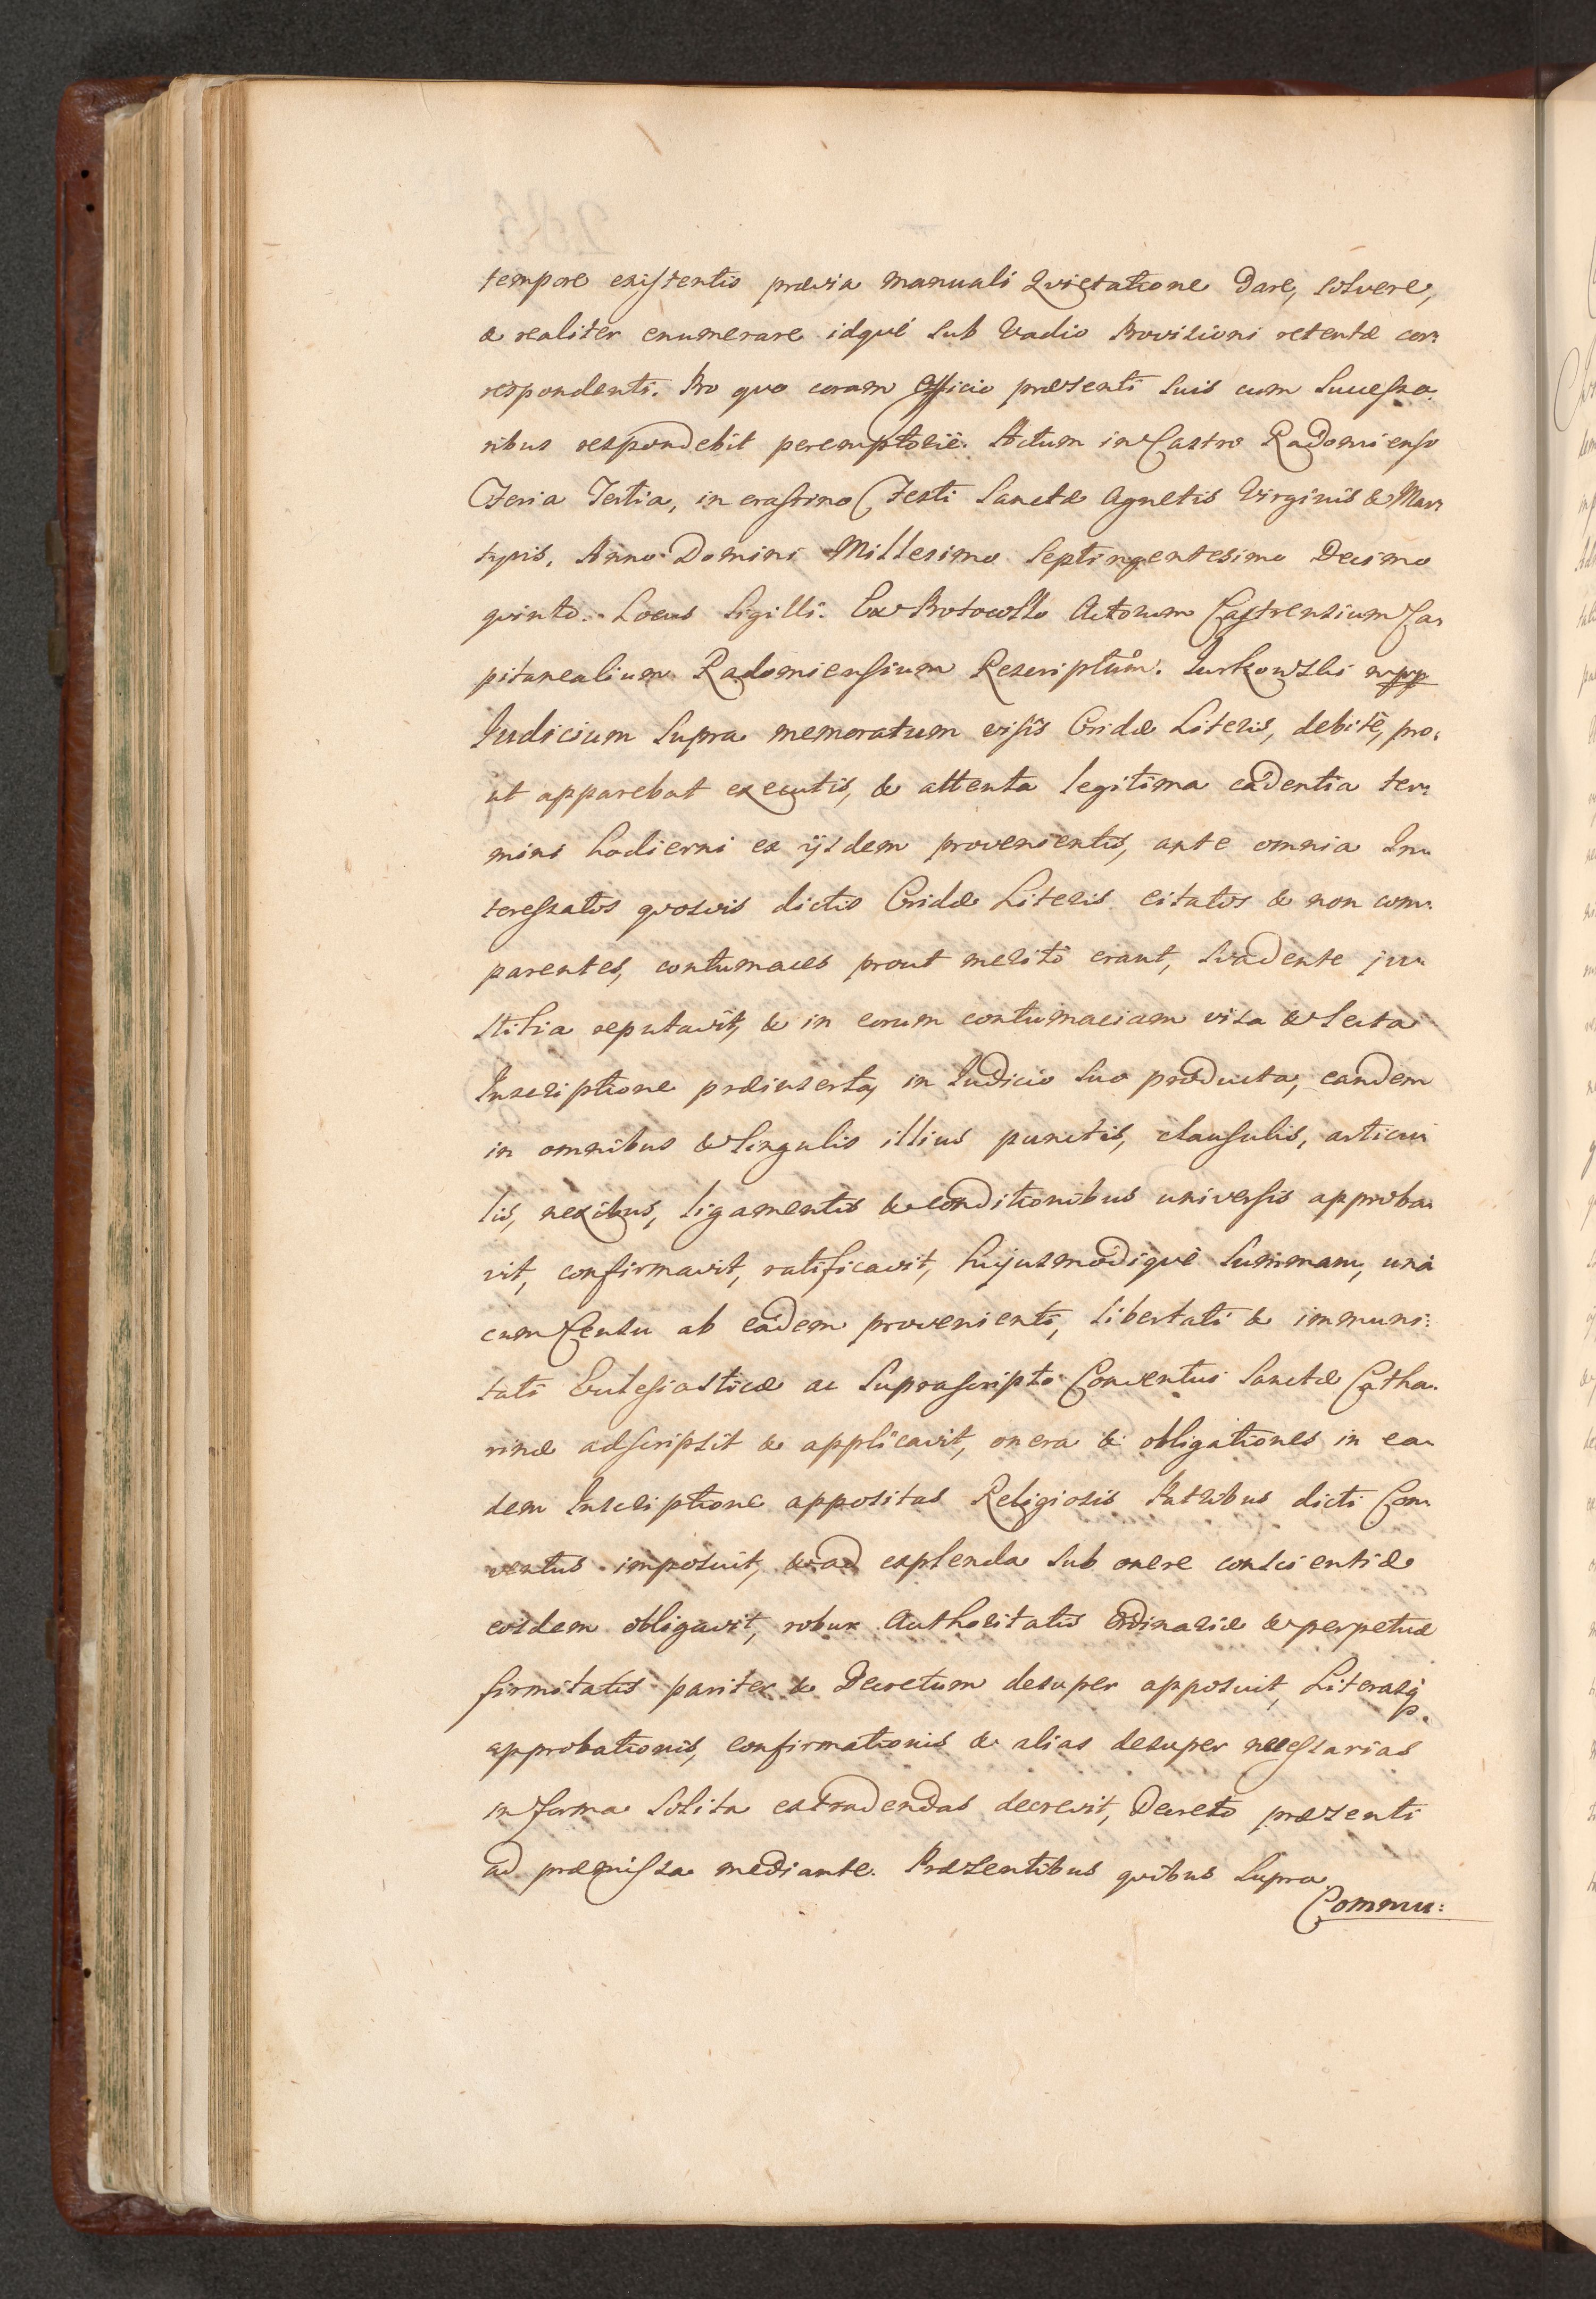 tempore existentis prævia manuali Qvietatione dare, solvere,
& realiter enumerare idqué sub Vadio Provisioni retentæ cor:
respondenti. Pro quo coram Officio præsenti suis cum Successo:
ribus respondebit peremptorié. Actum in Castro Radomiensi
Feria Tertia, in crastino Festi Sanctæ Agnetis Virginis & Mar:
tyris, Anno Domini Millesimo Septingentesimo Decimo
quinto. Locus Sigilli. Ex Protocollo Actorum Castrensium Ca:
pitanealium Radomiensium Rescriptum. Jurkowski mpp
Judicium supra memoratum visis Cridæ Literis, debité, pro:
ut apparebat executis, & attenta legitima cadentia ter:
mini hodierni ex ijsdem provenientis, ante omnia In:
teressatos quosvis dictis Cridæ Literis citatos & non com:
parentes, contumaces prout merito erant, svadente ju:
stitia reputavit, & in eorum contumaciam visa & lecta
Inscriptione præinserta, in Judicio suo producta, eandem
in omnibus & singulis illius punctis, clausulis, articu:
lis, nexibus, ligamentis & conditionibus universis approba:
vit, confirmavit, ratificavit, hujusmodiqué Summam, unà
cum Censu ab eâdem provenienti, libertati & immuni:
tati Ecclesiasticæ ac suprascripto Conventui Sanctæ Catha:
rinæ adscripsit & applicavit, onera & obligationes in ea:
dem Inscriptione appositas Religiosis Patribus dicti Con:
ventus imposuit, & ad explenda sub onere conscientiæ
eosdem obligavit, robur Authoritatis Ordinariæ & perpetuæ
firmitatis pariter & Decretum desuper apposuit, Literasq.
approbationis, confirmationis & alias desuper necessarias
in forma solita extradendas decrevit, Decreto præsenti
ad præmissa mediante. Præsentibus quibus supra.
Commu: